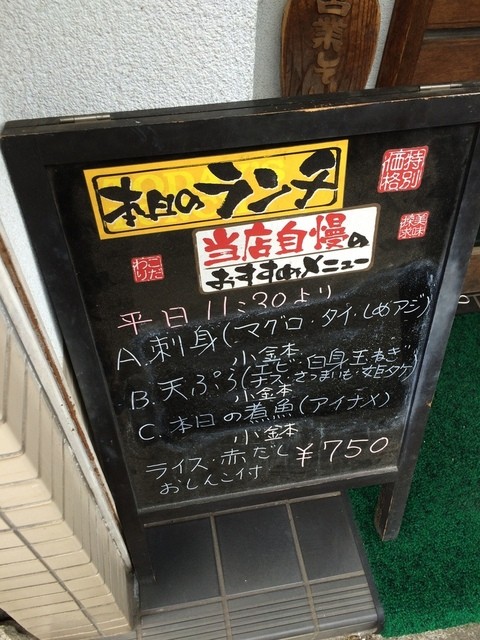 営業中
本日のランチ
特別
価格
当店自慢の
おすすめメニュー
美味
探求
こだ
わり
平日 11:30より
A.刺身(マグロ・タイ・しめアジ)
小金本
B.天ぷら(エビ・白身・玉ねぎ
ナス・さつまいも・姫タケ)
小金本
C.本日の煮魚(アイナメ)
小金本
ライス・赤だし ¥750
おしんこ付